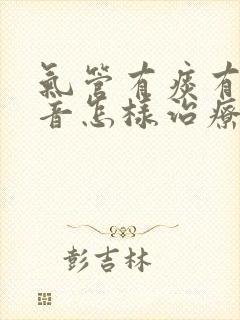 氣管有痰有
音怎樣治療
彭吉林